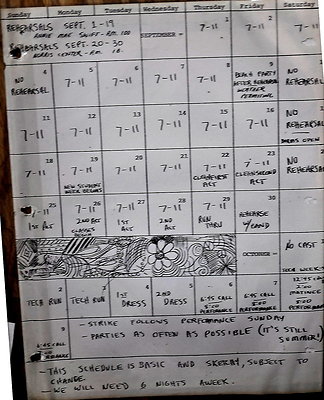 Sunday Monday Tuesday Wednesday Thursday Friday Saturday
REHEARSALS SEPT. 1-19
ANNIE MAE SWIFT - RM. 100
REHEARSALS SEPT. 20-30
NORRIS CENTER - RM.
SEPTEMBER -
1 7-11
2 7-11
3 7-11
4 NO REHEARSAL
5 7-11
6 7-11
7 7-11
8 7-11
9 BEACH PARTY AFTER REHEARSAL WEATHER PERMITTING
NO REHEARSAL
11 7-11
12 7-11
13 7-11
14 7-11
15 7-11
16 7-11
NO REHEARSAL
DORMS OPEN
18 7-11
19 7-11 NEW STUDENT WEEK BEGINS
20 7-11
21 7-11
22 7-11 CLEAN FIRST ACT
23 7-11 CLEAN SECOND ACT
NO REHEARSAL
25 7-11 1st ACT
26 7-11 2ND ACT CLASSES BEGIN
27 7-11 1st ACT
28 7-11 2ND ACT
29 7-11 RUN THRU
30 REHEARSE W/BAND
OCTOBER -
NO CAST
TECH WEEK
2 TECH RUN
3 TECH RUN
4 1st DRESS
5 2ND DRESS
6 6:45 CALL 8:00 PERFORMANCE
7 6:45 CALL 8:00 PERFORMANCE
12:45 CALL
2:00 MATINEE
8:00 PERFORMANCE
9 6:45 CALL
- STRIKE FOLLOWS PERFORMANCE SUNDAY
- PARTIES AS OFTEN AS POSSIBLE (IT'S STILL SUMMER!)
- THIS SCHEDULE IS BASIC AND SKETCHY, SUBJECT TO
CHANGE.
- WE WILL NEED 6 NIGHTS A WEEK.